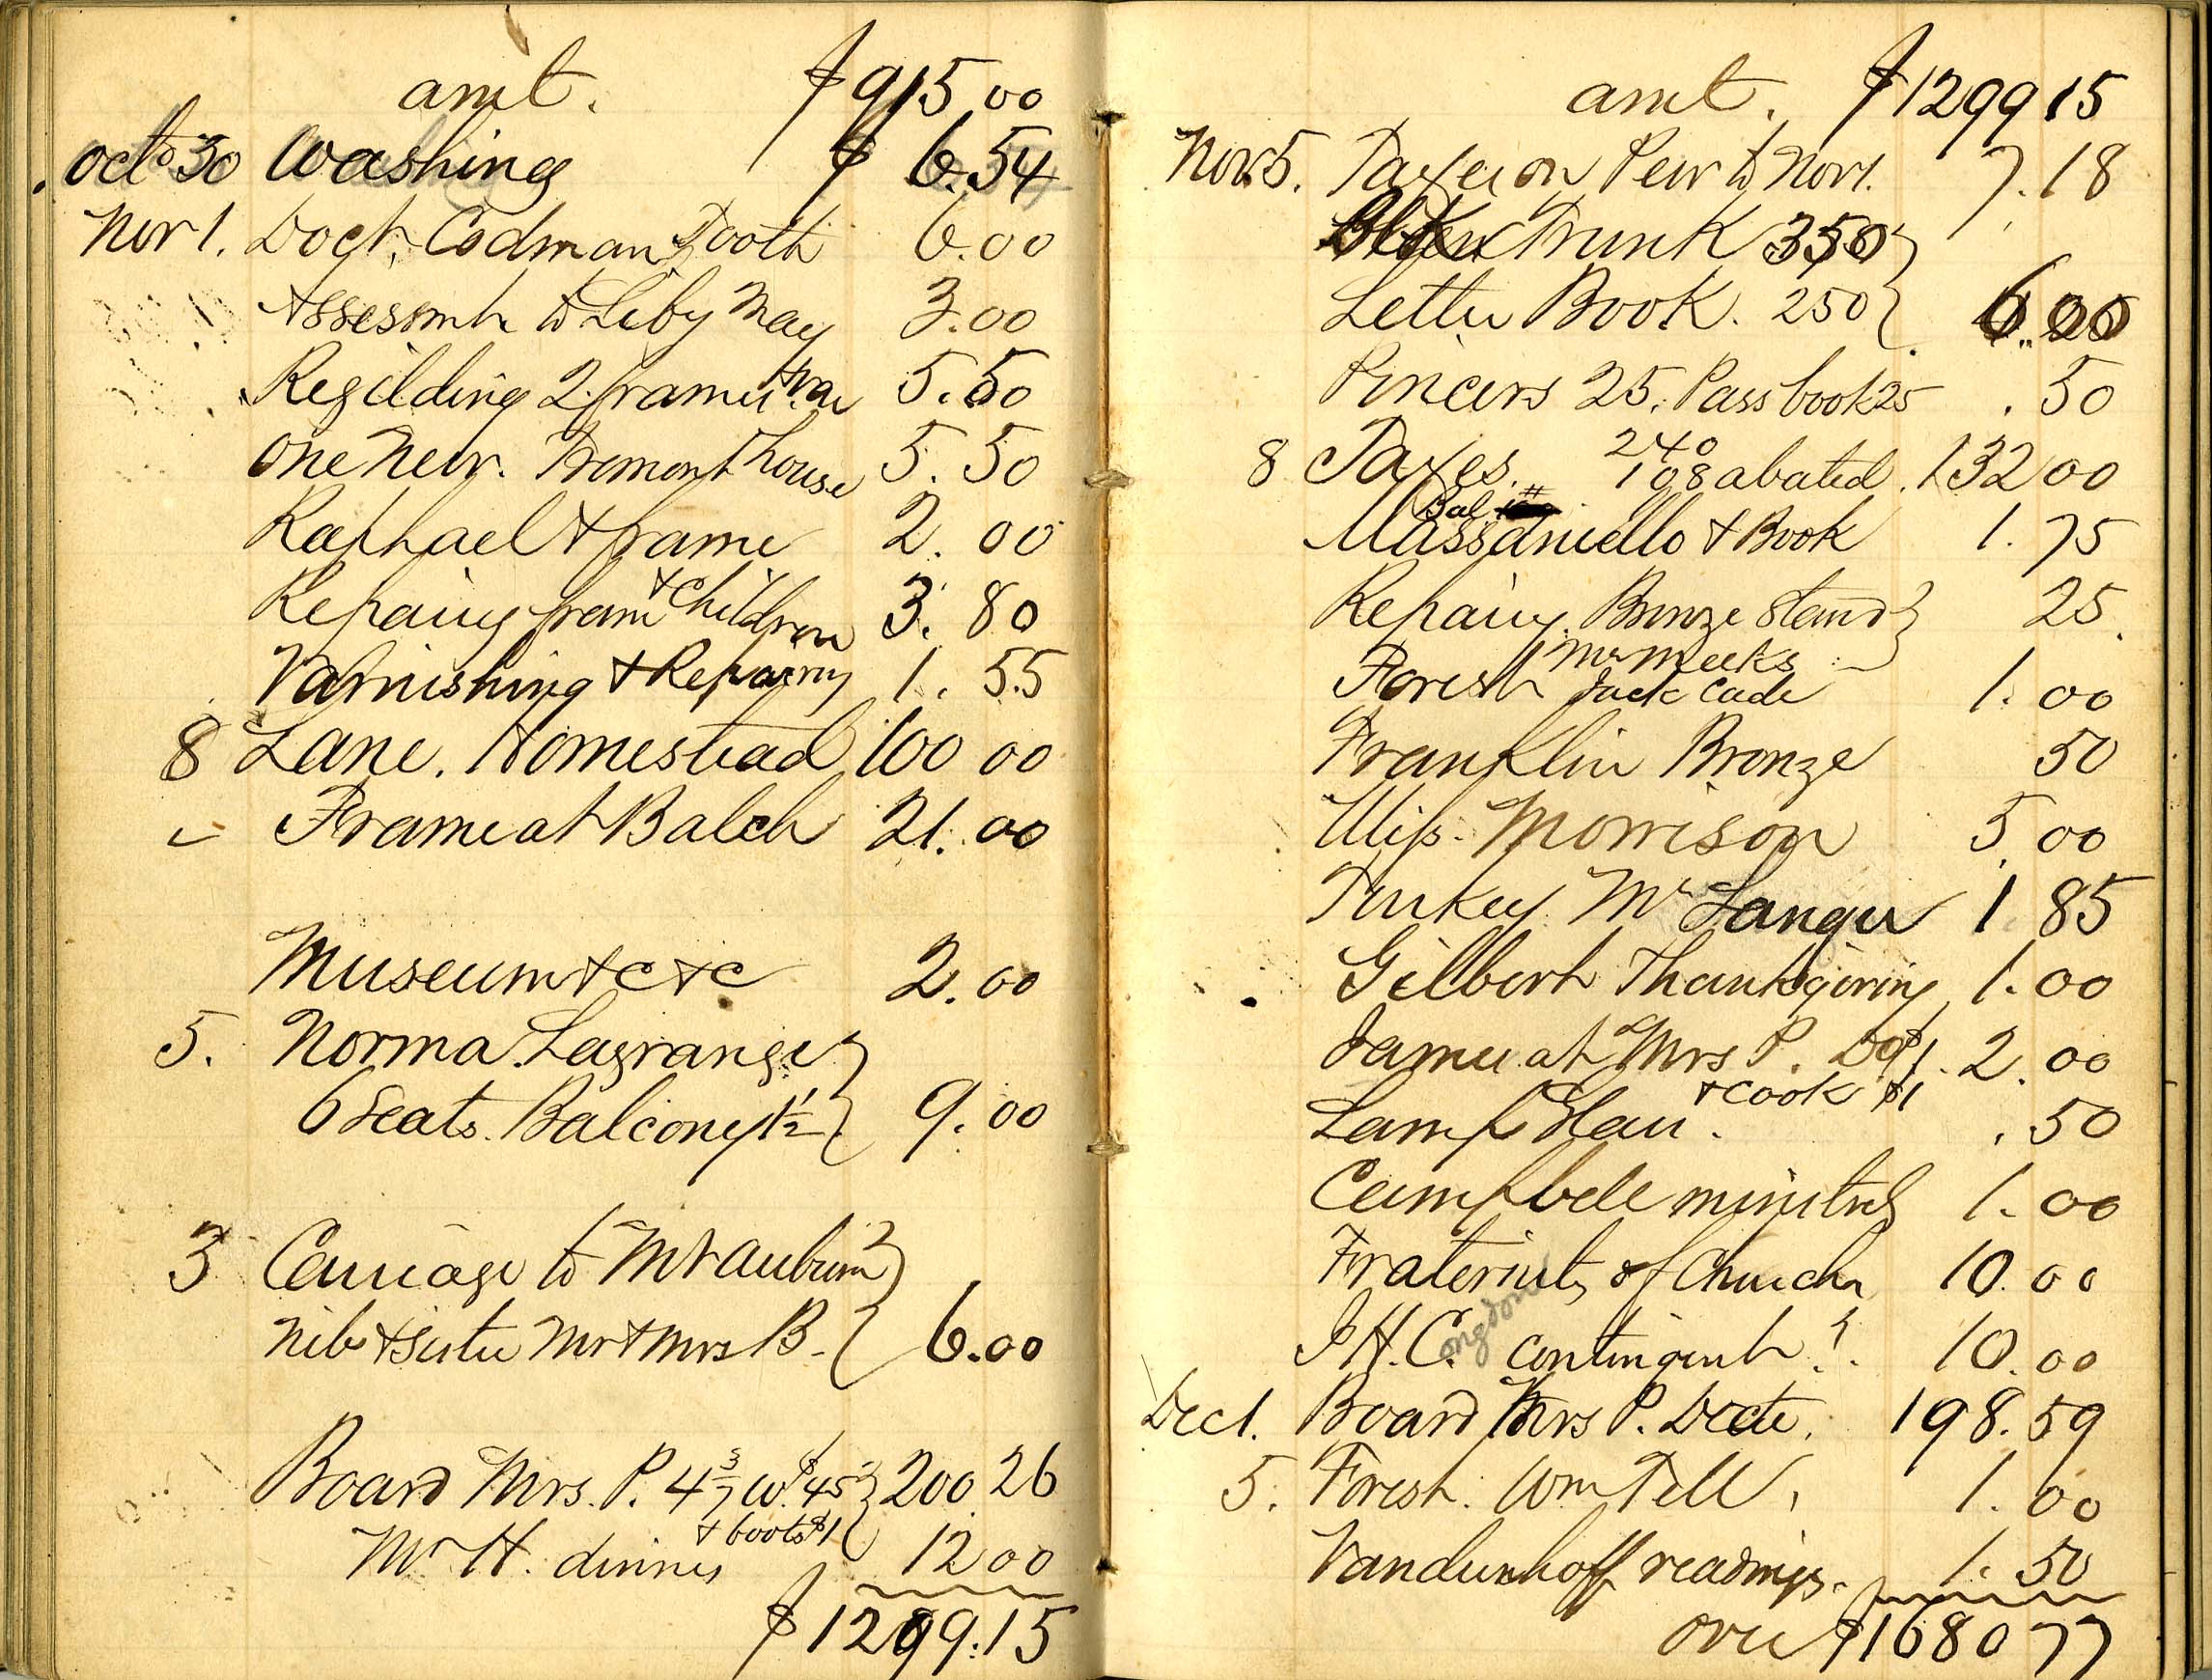 amt. $915.00
Oct 30 Washing $ 6.54
Nov 1. Doct. Codman Tooth 6.00
Assessmt to Liby May 3.00
Regilding 2 frames 5.50
One New. Tremont House 5.50
Raphael & frame 2.00
Repairing frame & Children 3.80
Varnishing & Repairing 1.55
8 Lane. Homestead 100 00
Frame at Balch 21.00
Museum &c &c 2.00
5. Norma. Lagrange
6 Seats. Balcony 1½ 9.00
3 Carriage to Mt Auburn
Mr & Mrs B. 6.00
Board Mrs. P. 4 3/7 W. $45 200.26
& boots $1
Mr H. dinners 12 00
$1299.15
amt. $1299 15
Nov. 5. Taxes on Pew to Nov 1. 7.18
Trunk 350
Letter Book. 250 6.00
Pincers 25. Pass book 25 .50
240
8 Taxes. 108 abated. 132 00
Bal
Massaniello & Book 1.75
Repairing Bronze Stand 25
Mr Meeks
Forest Jack Cade 1.00
Franklin Bronze 50
Miss Morrison 5.00
Turkey Mr Langer 1 85
Gilbert Thanksgiving 1.00
James at Mrs P. Do $1. 2.00
& Cook $1
Lamp .50
Campbell minstrels 1.00
Fraternity of Church 10.00
P. H. C. contingent 10.00
ongdon
Dec 1. Board Mrs P. 198.59
5. Forest. Wm Tell, 1.00
Vandenhoff readings. 1.50
over $1680 77